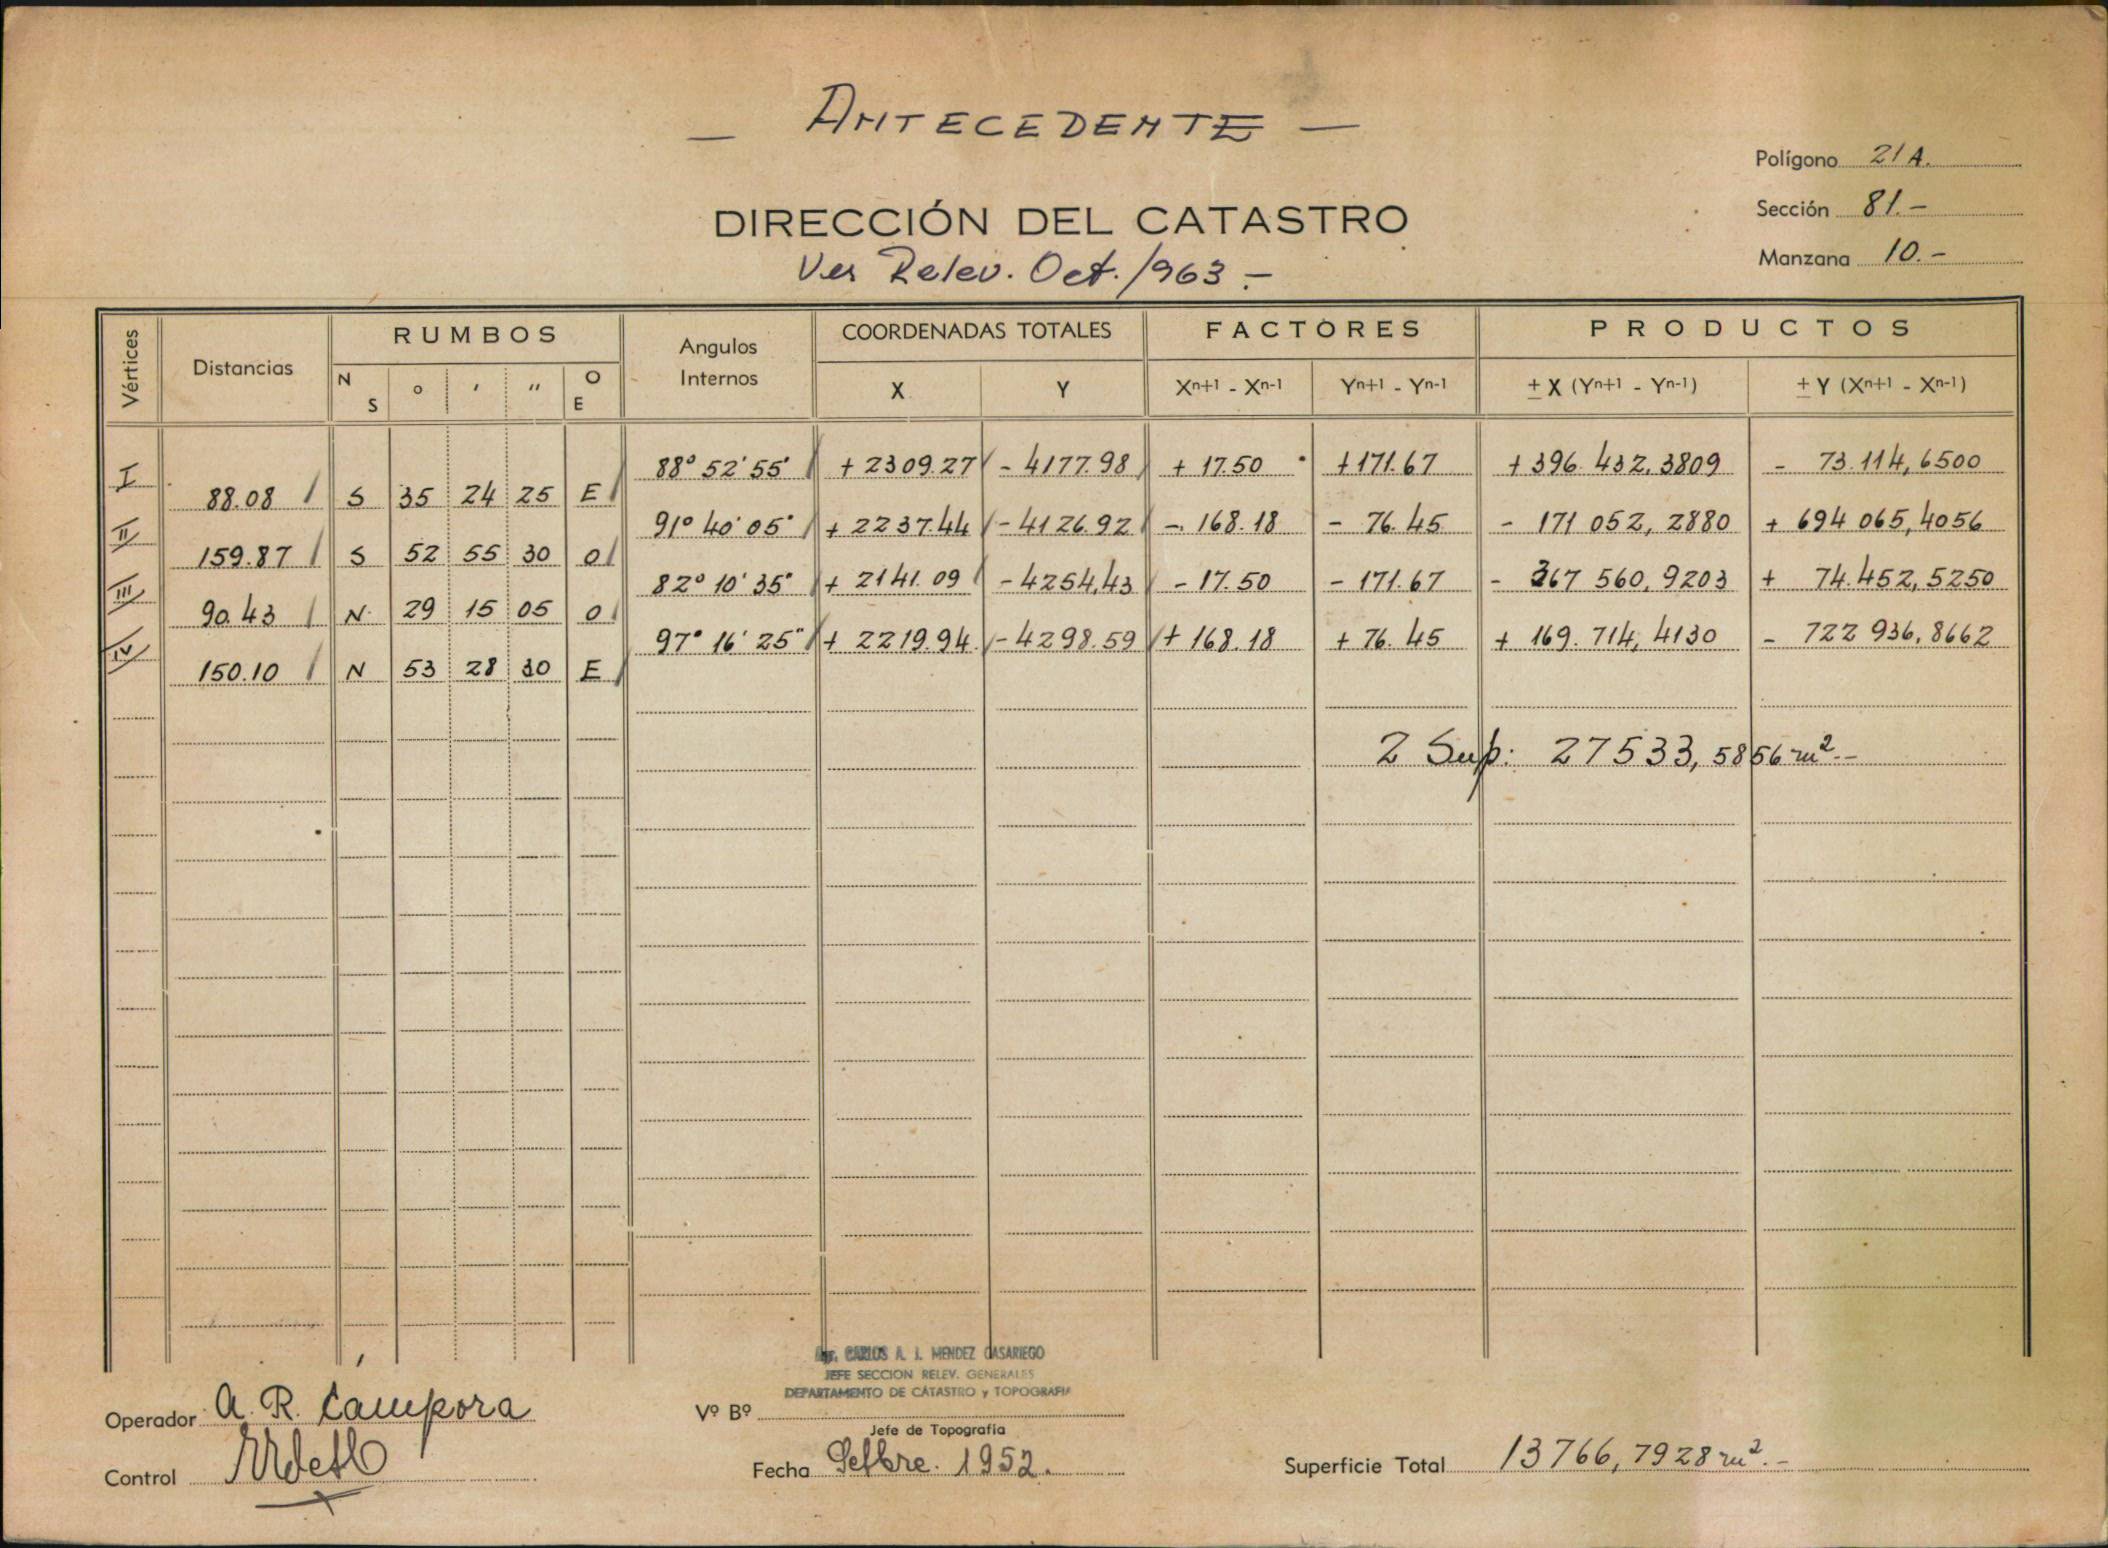 — ANTECEDENTE —
Polígono 21A.
Sección 81.-
Manzana 10.-
DIRECCIÓN DEL CATASTRO
Ver Relev. Oct./963.-
Vértices Distancias RUMBOS Angulos Internos COORDENADAS TOTALES FACTORES PRODUCTOS
N S o ' " O E X Y Xn+1 - Xn-1 Yn+1 - Yn-1 ± X (Yn+1 - Yn-1) ± Y (Xn+1 - Xn-1)
I 88°52'55" +2309.27 -4177.98 +17.50 +171.67 +396.432,3809 - 73.114,6500
88.08 S 35 24 25 E
II 91°40'05" +2237.44 -4126.92 -168.18 -76.45 -171 052,2880 +694 065,4056
159.87 S 52 55 30 O
III 82°10'35" +2141.09 -4254,43 -17.50 -171.67 -367 560,9203 +74.452,5250
90.43 N 29 15 05 O
IV 97°16'25" +2219.94 -4298.59 +168.18 +76.45 +169.714,4130 -722 936,8662
150.10 N 53 28 30 E
2 Sup: 27533,5856 m².-
Agr. CARLOS A. J. MENDEZ CASARIEGO
JEFE SECCION RELEV. GENERALES
DEPARTAMENTO DE CATASTRO y TOPOGRAFIA
Operador A. R. Cámpora
Vº Bº
Jefe de Topografía
Control
Fecha Setbre. 1952.
Superficie Total 13766,7928 m².-